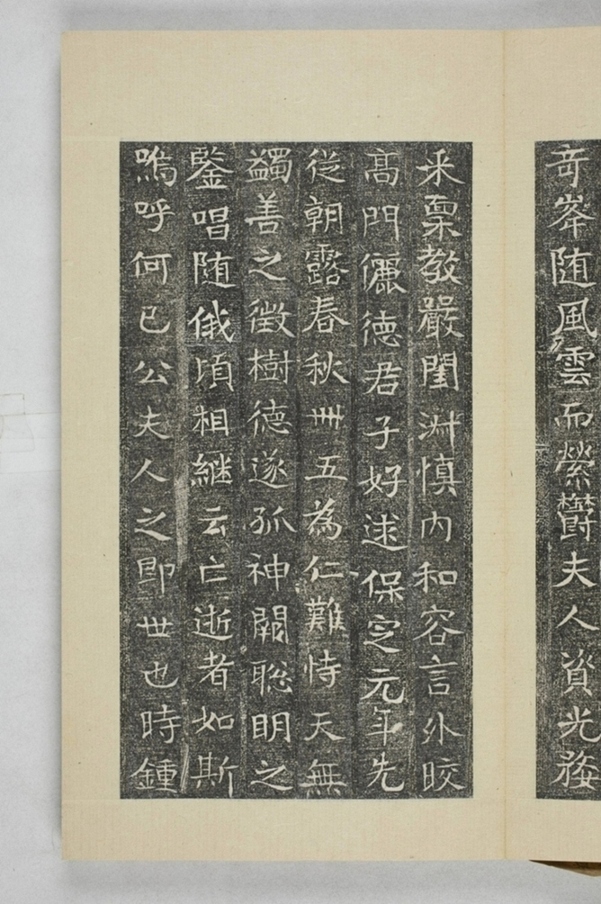 奇峯随風雲而縈欝夫人資光婺
采稟教嚴閨淋慎內和容言外皎
髙門儷徳君子好逑保㝎元年先
從朝露春秋卌五為仁難恃天無
蠲善之徴樹德遂孤神闕聡明之
鑒唱随俄頃相継云亡逝者如斯
嗚呼何已公夫人之即世也時鍾